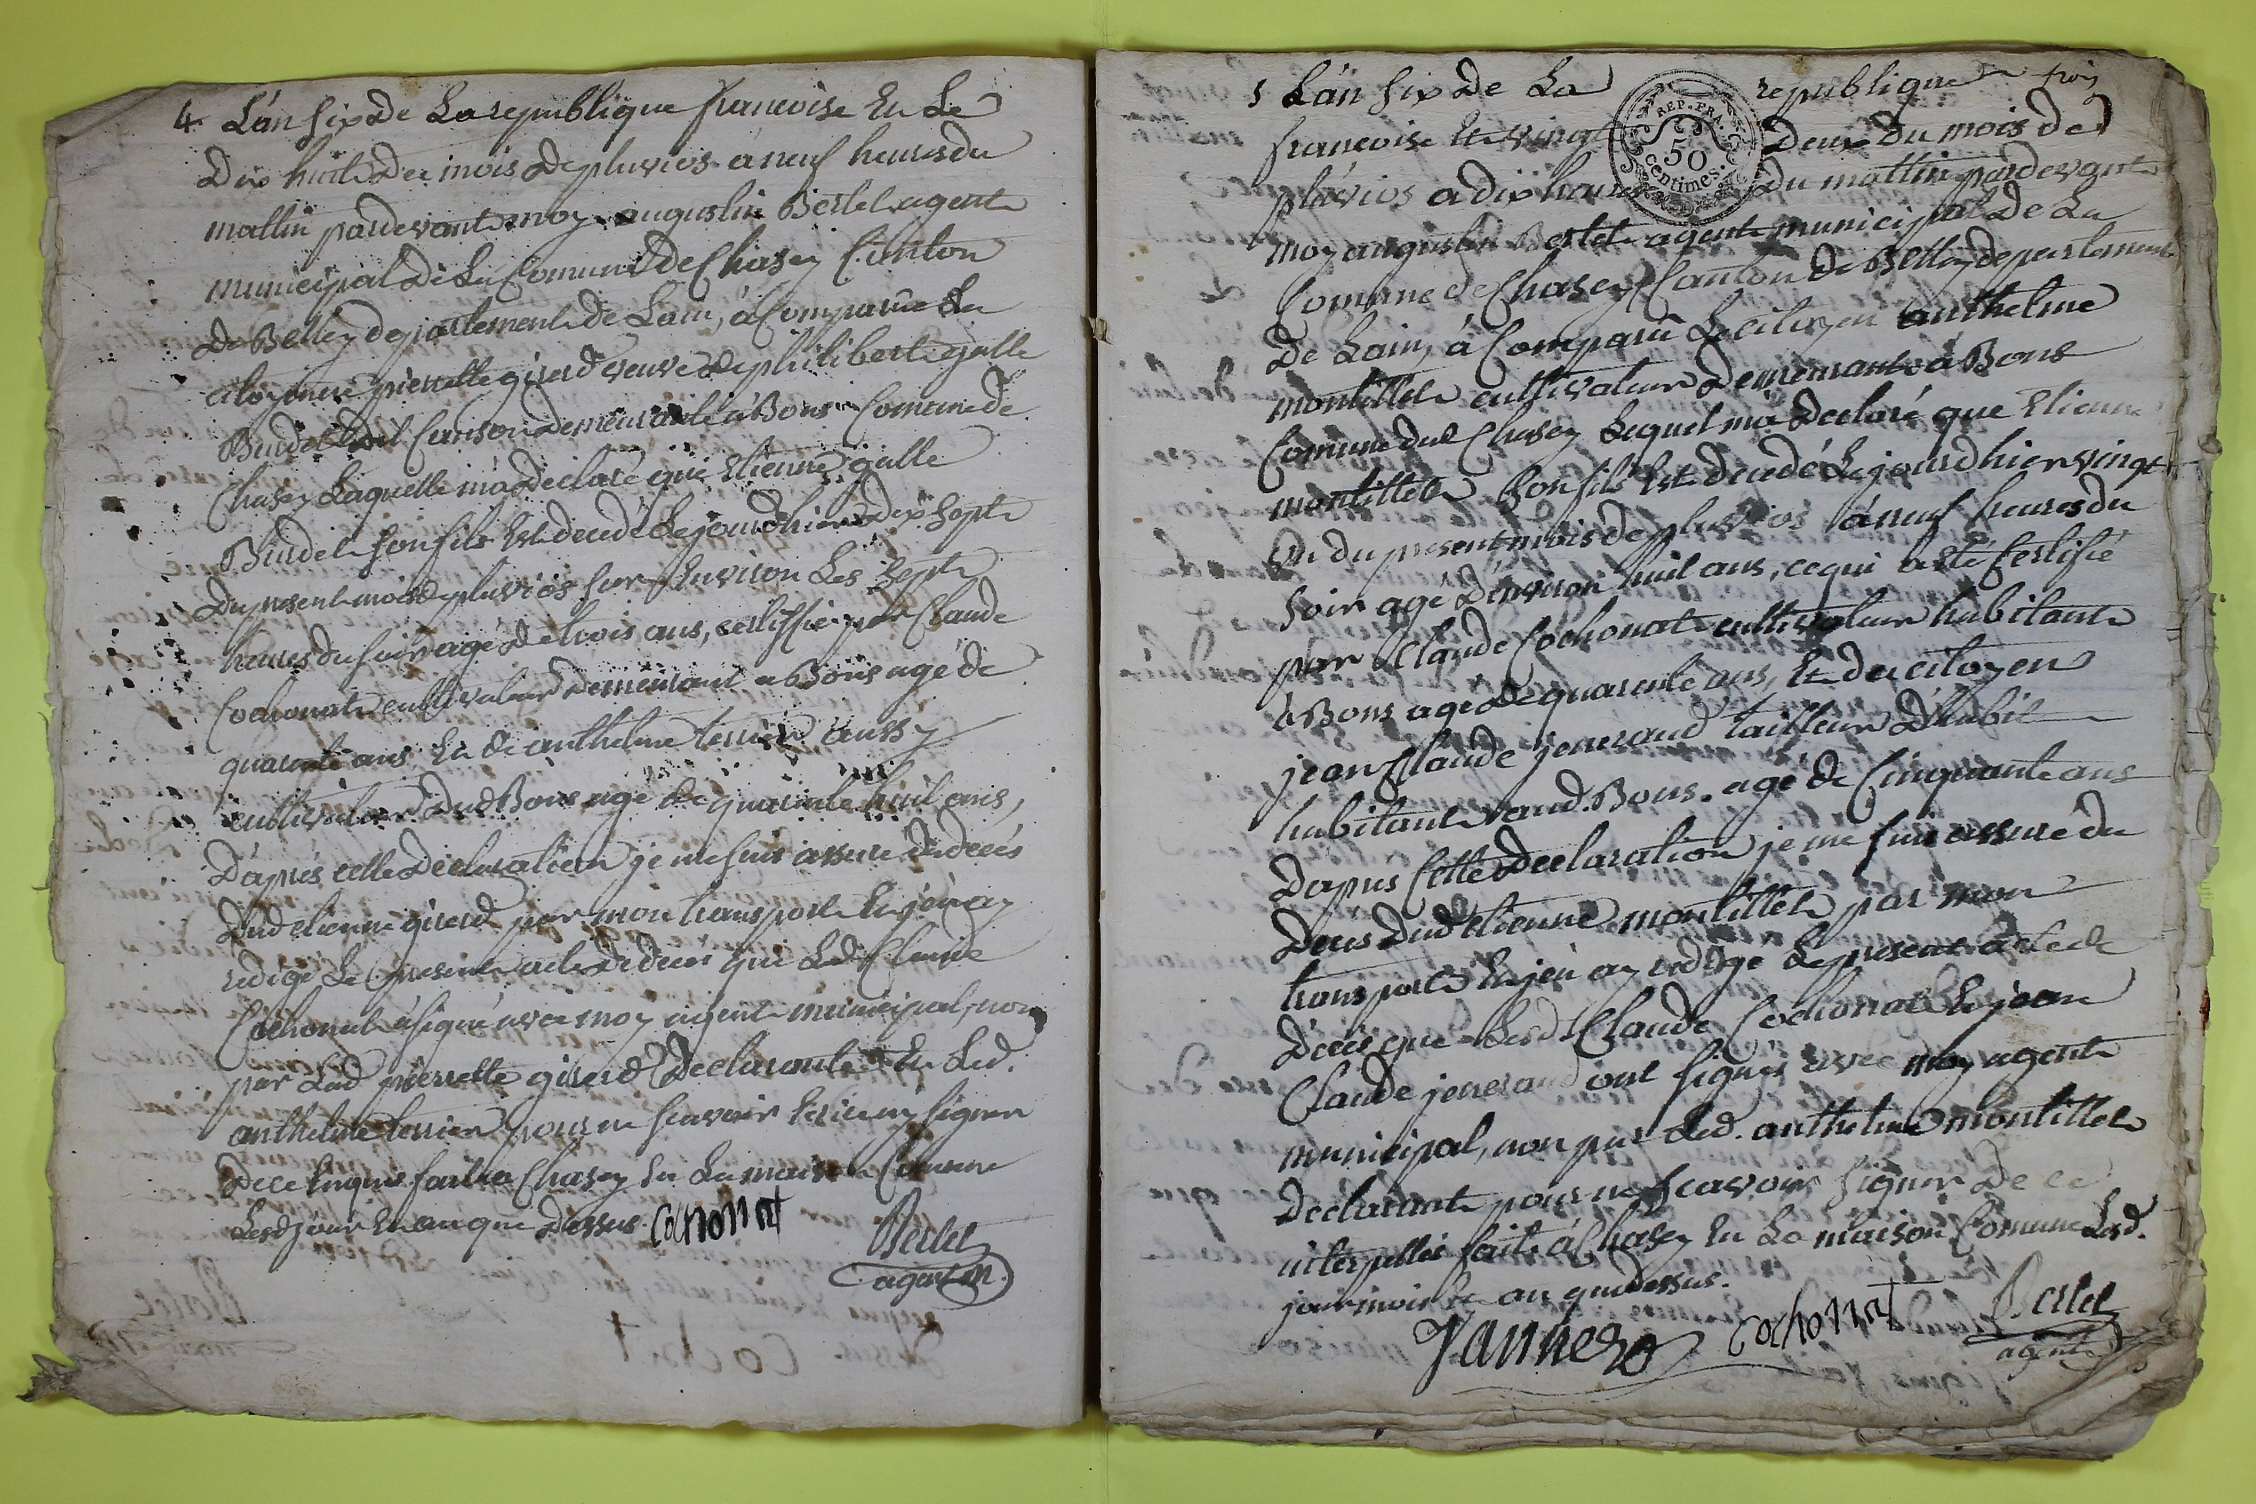 4. L'an six de La republique francoise Et Le
dix huit du mois de pluvios a neuf heures du
mattin pardevant moy augustin Bertet agent
municipal de La Comune de Chasey Canton
de Belley departement de Lain, à Comparüe La
citoyenne pierrette girerd veuve de philibert galle
Bindet demeurante à Bons Comune de
Chasey Laquelle m'a declaré que Etienne galle
Bindet son fils Est decedé Le jourd'hier dix sept
du present mois de pluvios sur Environ Les Sept
heures du soir agé de trois ans, certiffié par Claude
Cochonat cultivateur demeurant a Bons agé de
quarante ans Et de anthelme terrier aussy
cultivateur dud Bons agé de quarante huit ans,
D'après cette declaration je me suis assuré du decés
dud etienne girerd par mon transport Et j'en ay
redigé Le present acte de deces que Led. Claude
Cochonat à signé avec moy agent municipal, non
par Lad pierrette girerd declarante Et Led.
anthelme terrier pour ne scavoir Ecrire ny signer
de ce Enquis fait a Chasey En La maison Comune
Lesd jour Et an que dessus. cochonat
Bertet
agent m.
5 L'an six de La republique trois
francoise Et vingt deux du mois de
plüvios a dix heures du mattin pardevant
moy augustin Bertet agent municipal de La
Comune de Chasey Canton de Belley departement
de Lain, à Comparü Le citoyen anthelme
montillet cultivateur demeurant à Bons
Comune dud Chasey Lequel m'a declaré que Etienne
montillet son fils Est decedé Le jourd'hier vingt
un du present mois de pluvios à neuf heures du
soir agé d'environ huit ans, ce qui a eté Certifié
par Claude Cochonat cultivateur habitant
à Bons agé de quarante ans, Et du citoyen
jean Claude jenerand tailleur d'habit
habitant aud. Bons. agé de Cinquante ans
D'apres Cette declaration je me suis assuré du
deces dud Etienne montillet par mon
transport Et j'en ay redigé Le present acte de
décés que Lesd Claude Cochonat Et jean
Claude jenerand ont signés avec moy agent
municipal, non par Led. anthelme montillet
declarant pour ne scavoir signer de ce
interpellés fait à Chasey En La maison Comune Lesd.
jour mois Et an que dessus.
cochonat Bertet
agent
REP. FRA.
50
centimes.